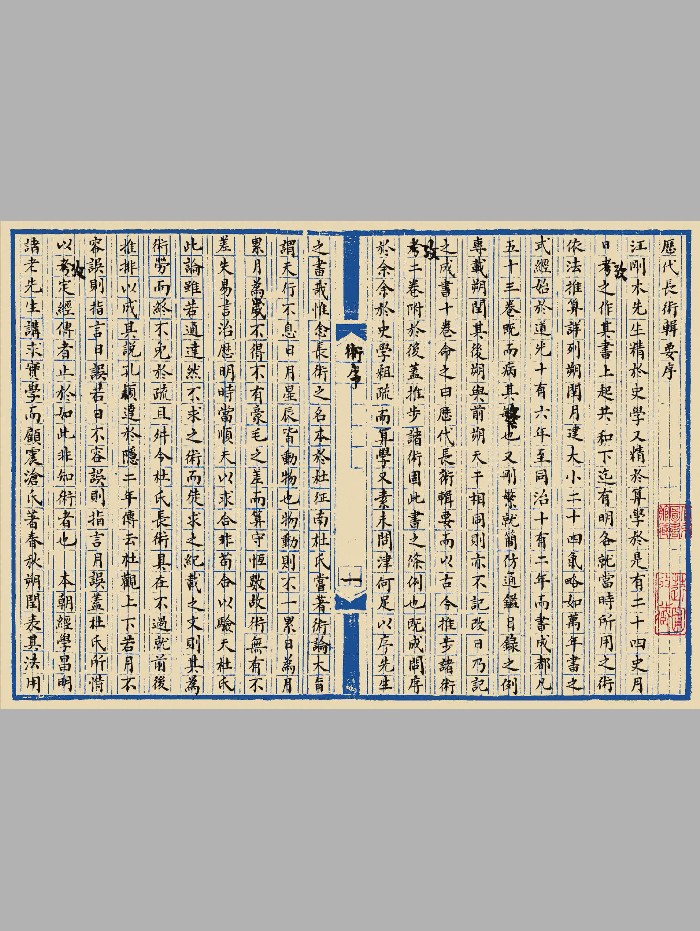 歷代長術輯要序
江剛木先生精於史學又精於算學於是有二十四史月
日考之作其書上起共和下迄有明各就當時所用之術
依法推算詳列朔閏月建大小二十四氣略如萬年書之
式經始於道光十有六年至同治十有二年而書成都凡
五十三卷旣而病其繁也又刪繁就簡仿通鑑目錄之例
專載朔閏其後朔與前朔天干相同則亦不記改日乃記
之成書十卷命之曰歷代長術輯要而以古今推步諸術
考二卷附於後蓋推步諸術固此書之條例也旣成問序
於余余於史學粗疏而算學又素未問津何足以序先生
術序
一
之書哉惟念長術之名本於杜征南杜氏嘗著術論大旨
謂天行不息日月星辰皆動物也物動則不一累日爲月
累月爲歲不得不有毫毛之差而算守恒數故術無有不
差失易書治歷明時當順天以求合非苟合以驗天杜氏
此論雖若通達然不求之術而徒求之紀載之文則其爲
術勞而終不免於疏且舛今杜氏長術具在不過就前後
推排以成其說孔穎達於隱二年傳云杜觀上下若月不
容誤則指言日誤若日不容誤則指言月誤蓋杜氏所憑
以考定經傳者止於如此非知術者也　本朝經學昌明
諸老先生講求實學而顧震滄氏著春秋朔閏表其法用